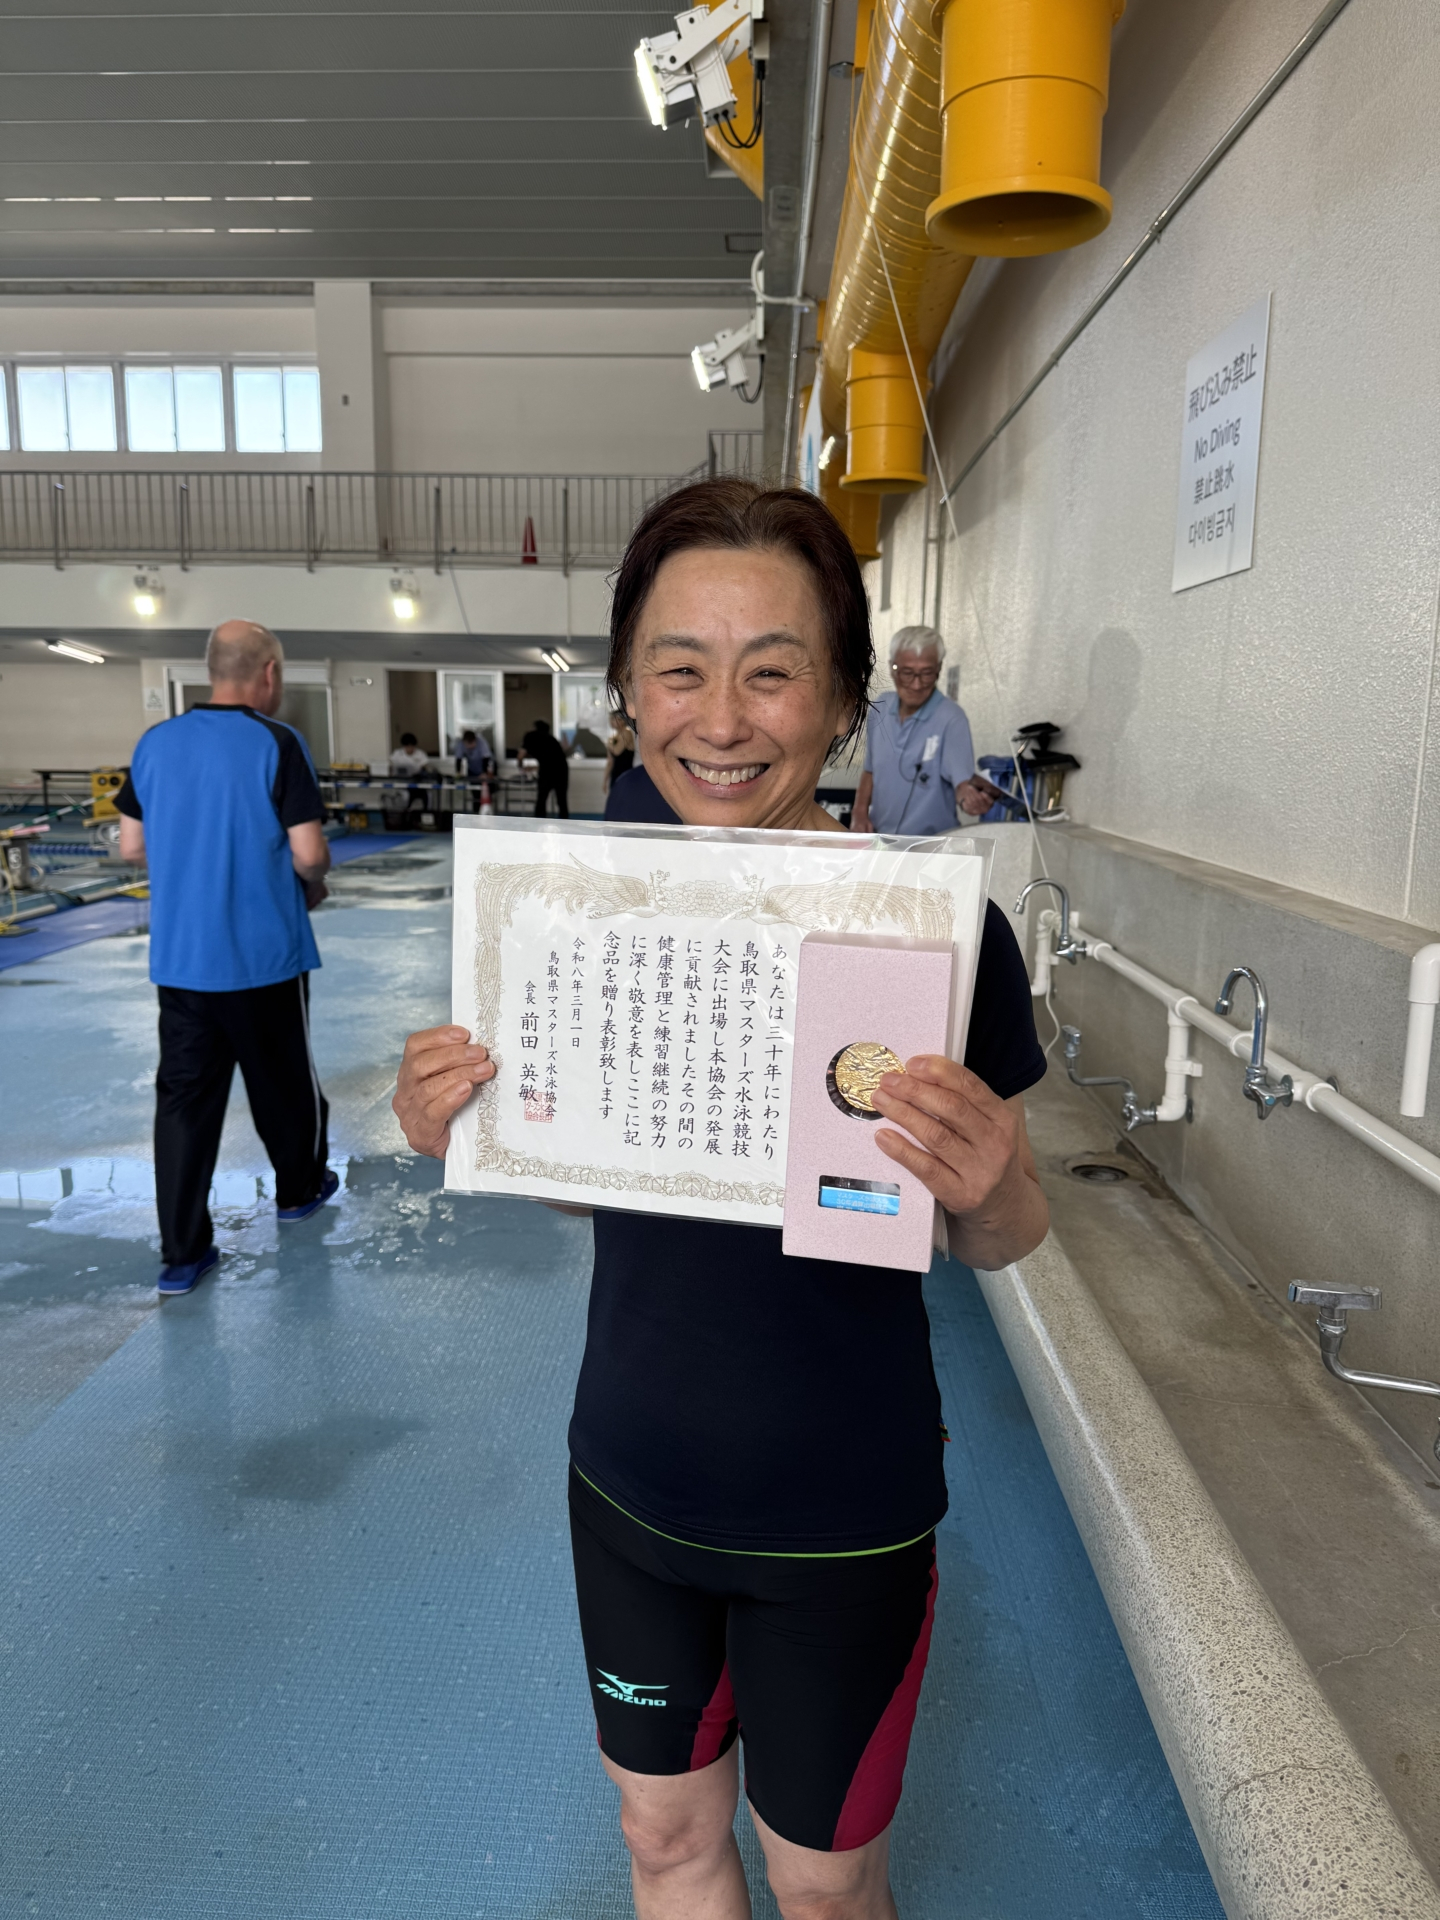 飛び込み禁止
No Diving
禁止跳水
다이빙금지
あなたは三十年にわたり
鳥取県マスターズ水泳競技
大会に出場し本協会の発展
に貢献されましたその間の
健康管理と練習継続の努力
に深く敬意を表しここに記
念品を贈り表彰致します
令和八年三月一日
鳥取県マスターズ水泳協会
会長 前田 英敏
MIZUNO